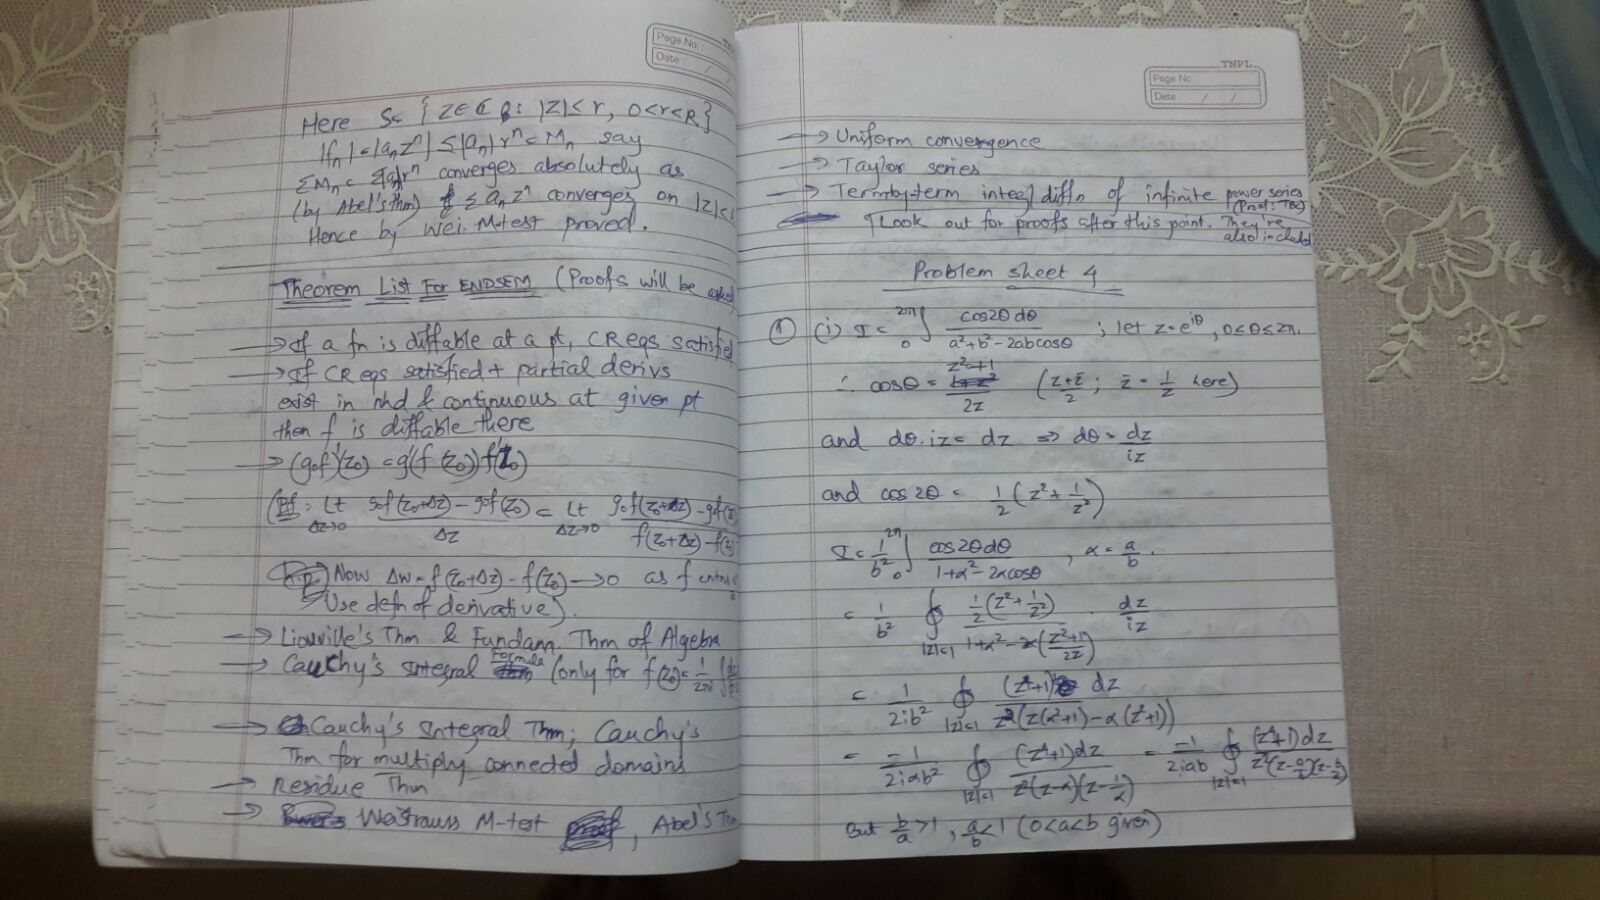 Page No.:
Date: / /
Here S = { z ∈ ℂ : |z| ≤ r, 0<r<R}
|fn| = |an z^n| ≤ |an| r^n = Mn say
ΣMn = Σ|an|r^n converges absolutely as
(by Abel's thm) Σ an z^n converges on |z|<
Hence by Wei. M-test proved.
Theorem List For ENDSEM (Proofs will be asked
→ If a fn is diffable at a pt, CR eqs satisfied
→ If CR eqs satisfied + partial derivs
exist in nhd & continuous at given pt
then f is diffable there
→ (gof)'(z0) = g'(f(z0)) f'(z0)
(Pf: Lt Δz→0 (gof(z0+Δz) - gof(z0))/Δz = Lt Δz→0 (gof(z0+Δz) - gof(z0))/(f(z0+Δz) - f(z0))
Now Δw = f(z0+Δz) - f(z0) → 0 as f
Use defn of derivative).
→ Liouville's Thm & Fundam. Thm of Algebra
→ Cauchy's Integral Formula (only for f(z0) = 1/2πi ∫
→ Cauchy's Integral Thm; Cauchy's
Thm for multiply connected domains
→ Residue Thm
→ Weistrauss M-test , Abel's Thm
TNPL
Page No.:
Date / /
→ Uniform convergence
→ Taylor series
→ Term by term integ/diffn of infinite power series
(Proof: TBC)
↑ Look out for proofs after this point. They're
also included
Problem sheet 4
① (i) I = ∫0^2π cos2θ dθ/(a²+b²-2abcosθ) ; let z=e^iθ, 0≤θ≤2π.
∴ cosθ = (z²+1)/2z ((z+z̄)/2 ; z̄ = 1/z here)
and dθ.iz = dz ⇒ dθ = dz/iz
and cos 2θ = 1/2 (z² + 1/z²)
I = 1/b² ∫0^2π cos2θdθ/(1+α²-2αcosθ) , α = a/b .
= 1/b² ∮|z|=1 (1/2(z²+1/z²))/(1+α²-2α((z²+1)/2z)) . dz/iz
= 1/2ib² ∮|z|=1 (z⁴+1) dz/(z²(z(α²+1)-α(z²+1)))
= -1/2iαb² ∮|z|=1 (z⁴+1)dz/(z²(z-α)(z-1/α)) = -1/2iab ∮|z|=1 (z⁴+1)dz/(z²(z-a/b)(z-b/a))
But b/a >1 , a/b <1 (0<a<b given)